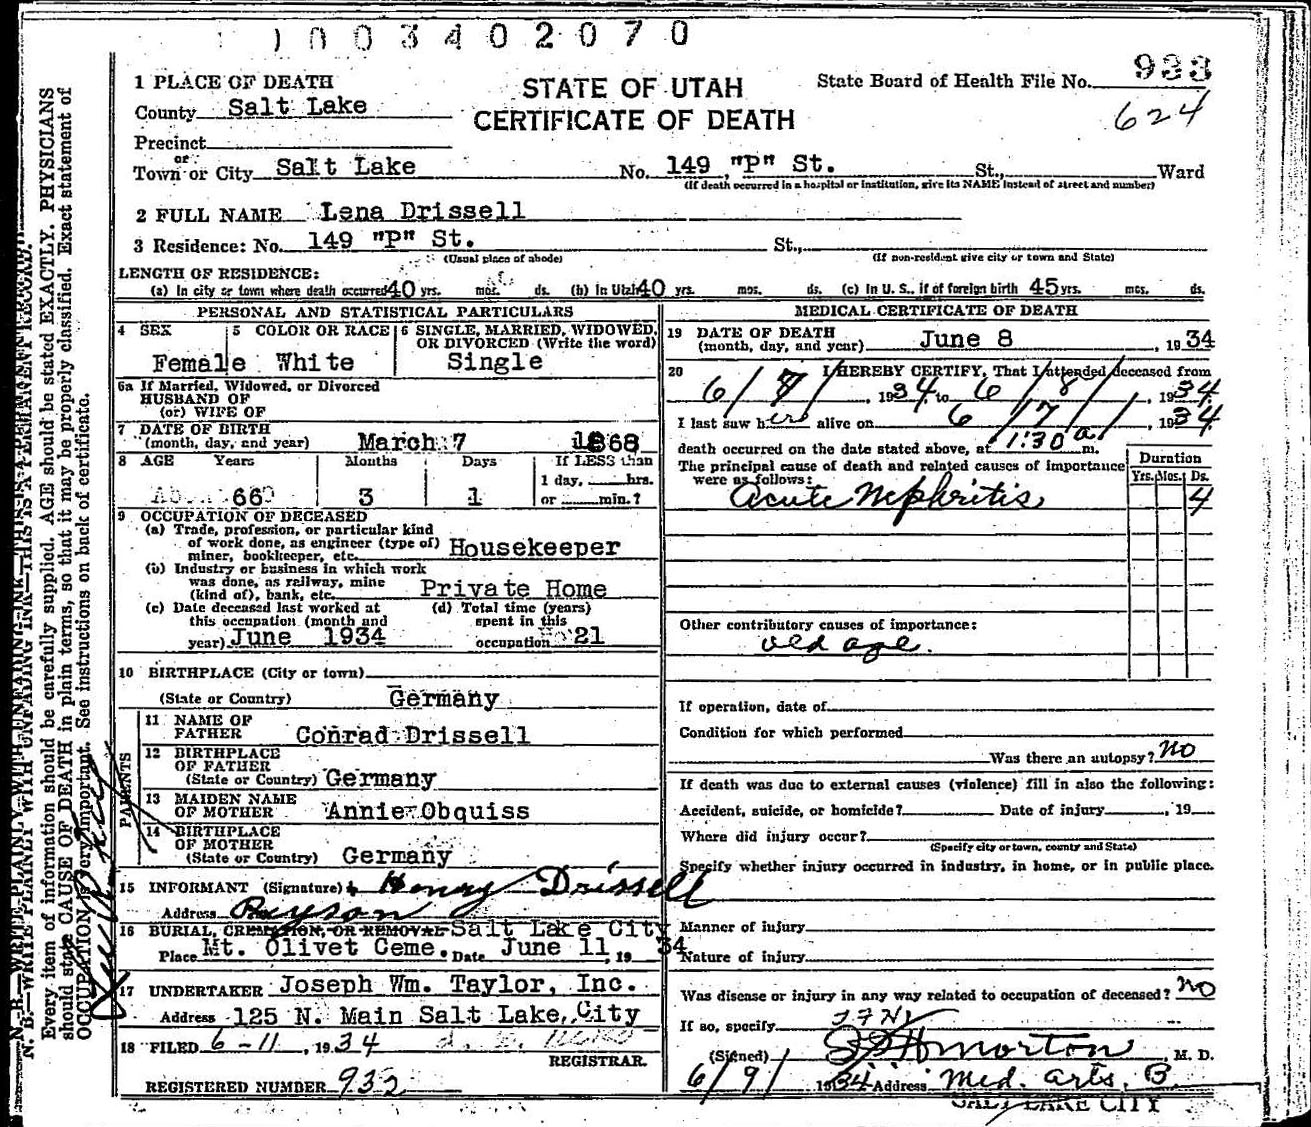 1003402070
933
624
STATE OF UTAH
CERTIFICATE OF DEATH
State Board of Health File No.
1 PLACE OF DEATH
County Salt Lake
Precinct
or
Town or City Salt Lake No. 149 "P" St. St., Ward
(If death occurred in a hospital or institution, give its NAME instead of street and number)
2 FULL NAME Lena Drissell
3 Residence: No. 149 "P" St. St.,
(Usual place of abode) (If non-resident give city or town and State)
LENGTH OF RESIDENCE:
(a) In city or town where death occurred 40 yrs. mos. ds. (b) In Utah 40 yrs. mos. ds. (c) In U. S., if of foreign birth 45 yrs. mos. ds.
PERSONAL AND STATISTICAL PARTICULARS
4 SEX 5 COLOR OR RACE 6 SINGLE, MARRIED, WIDOWED, OR DIVORCED (Write the word)
Female White Single
6a If Married, Widowed, or Divorced
HUSBAND OF
(or) WIFE OF
7 DATE OF BIRTH
(month, day, and year) March 7 1868
8 AGE Years Months Days If LESS than
1 day, hrs.
66 3 1 or min.?
9 OCCUPATION OF DECEASED
(a) Trade, profession, or particular kind
of work done, as engineer (type of)
miner, bookkeeper, etc. Housekeeper
(b) Industry or business in which work
was done, as railway, mine
(kind of), bank, etc. Private Home
(c) Date deceased last worked at (d) Total time (years)
this occupation (month and spent in this
year) June 1934 occupation 21
10 BIRTHPLACE (City or town)
(State or Country) Germany
PARENTS
11 NAME OF
FATHER Conrad Drissell
12 BIRTHPLACE
OF FATHER
(State or Country) Germany
13 MAIDEN NAME
OF MOTHER Annie Obquiss
14 BIRTHPLACE
OF MOTHER
(State or Country) Germany
15 INFORMANT (Signature) Henry Drissell
Address Payson
16 BURIAL, CREMATION, OR REMOVAL Salt Lake City
Place Mt. Olivet Ceme. Date June 11, 19 34
17 UNDERTAKER Joseph Wm. Taylor, Inc.
Address 125 N. Main Salt Lake, City
18 FILED 6-11, 1934
REGISTRAR.
REGISTERED NUMBER 932
MEDICAL CERTIFICATE OF DEATH
19 DATE OF DEATH
(month, day, and year) June 8, 1934
20 I HEREBY CERTIFY, That I attended deceased from
6/7, 1934 to 6/8/, 1934
I last saw her alive on 6/7/, 1934
death occurred on the date stated above, at 1:30 a. m.
The principal cause of death and related causes of importance
were as follows:
Duration
Yrs. Mos. Ds.
Acute Nephritis 4
Other contributory causes of importance:
old age.
If operation, date of
Condition for which performed
Was there an autopsy? no
If death was due to external causes (violence) fill in also the following:
Accident, suicide, or homicide? Date of injury , 19
Where did injury occur?
(Specify city or town, county and State)
Specify whether injury occurred in industry, in home, or in public place.
Manner of injury
Nature of injury
Was disease or injury in any way related to occupation of deceased? no
If so, specify
(Signed) Morton, M. D.
6/9/ 1934 Address Med. Arts. B
SALT LAKE CITY
N. B.—WRITE PLAINLY WITH UNFADING INK—THIS IS A PERMANENT RECORD.
Every item of information should be carefully supplied. AGE should be stated EXACTLY. PHYSICIANS
should state CAUSE OF DEATH in plain terms, so that it may be properly classified. Exact statement of
OCCUPATION is very important. See instructions on back of certificate.